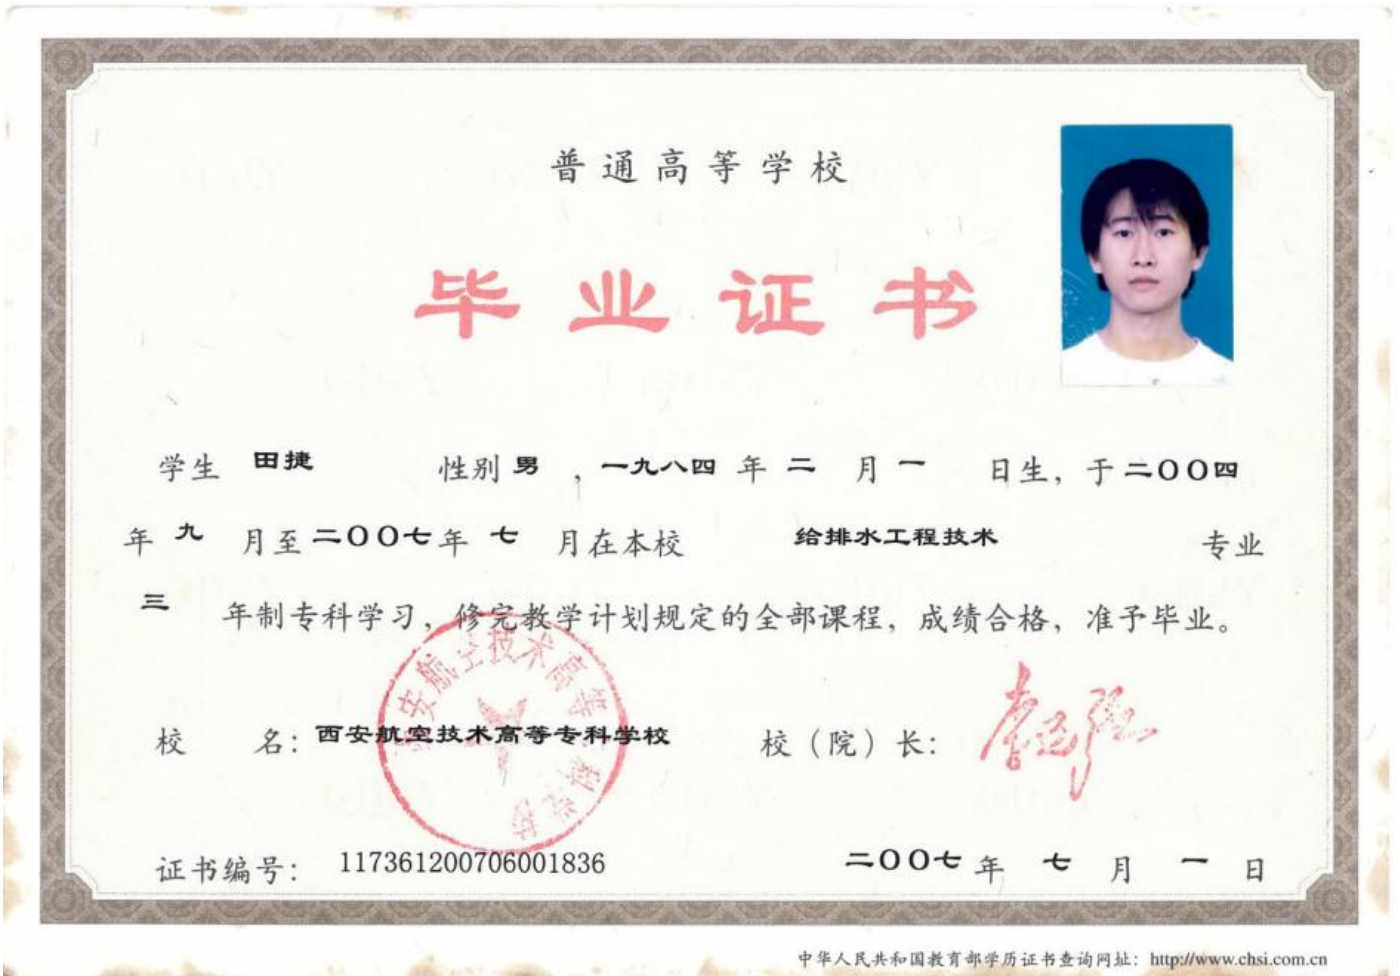 普通高等学校
毕业证书
学生 田捷 性别 男 ，一九八四 年 二 月 一 日生，于 二〇〇四
年 九 月至 二〇〇七 年 七 月在本校 给排水工程技术 专业
三 年制专科学习，修完教学计划规定的全部课程，成绩合格，准予毕业。
校 名：西安航空技术高等专科学校 校（院）长：
西安航空技术高等专科学校
证书编号： 117361200706001836 二〇〇七 年 七 月 一 日
中华人民共和国教育部学历证书查询网址：http://www.chsi.com.cn